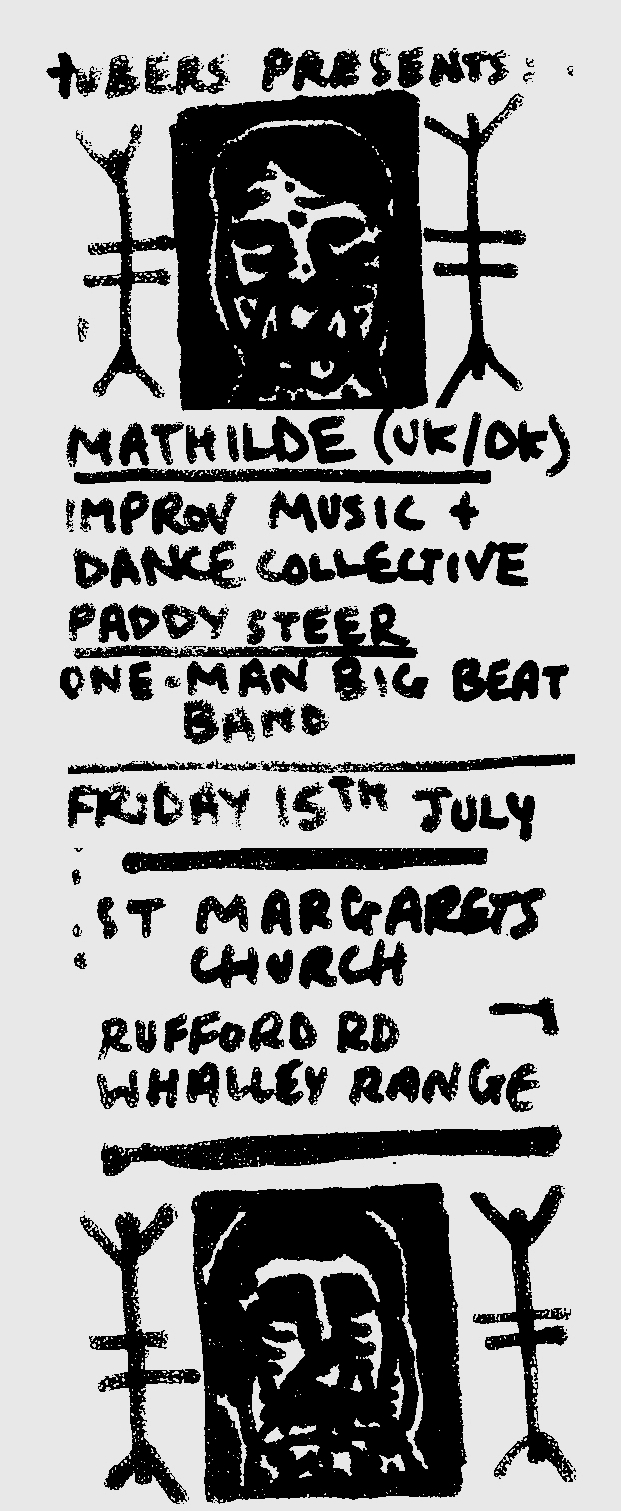 tUBERS PRESENTS:
MATHILDE (UK/DK)
IMPROV MUSIC +
DANCE COLLECTIVE
PADDY STEER
ONE-MAN BIG BEAT
BAND
FRIDAY 15TH JULY
ST MARGARETS
CHURCH
RUFFORD RD
WHALLEY RANGE